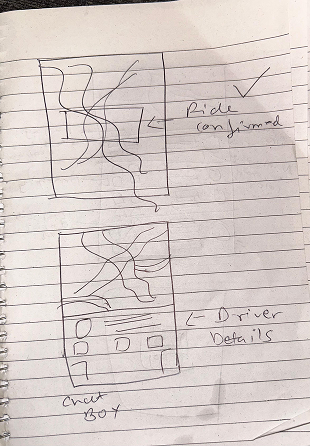 Ride
confirmed
Driver
Details
Chat
BOX